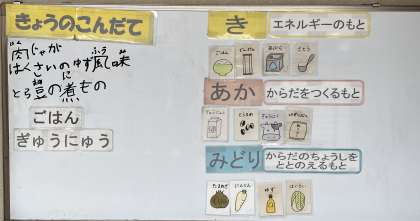 きょうのこんだて
肉じゃが
はくさいのゆず風味
ふう
に
とら豆の煮もの
ごはん
ぎゅうにゅう
き
エネルギーのもと
ごはん
あぶら
さとう
あか
からだをつくるもと
ぎゅうにゅう
とらまめ
ぎゅうにく
みどり
からだのちょうしを
ととのえるもと
たまねぎ
にんじん
ゆず
はくさい